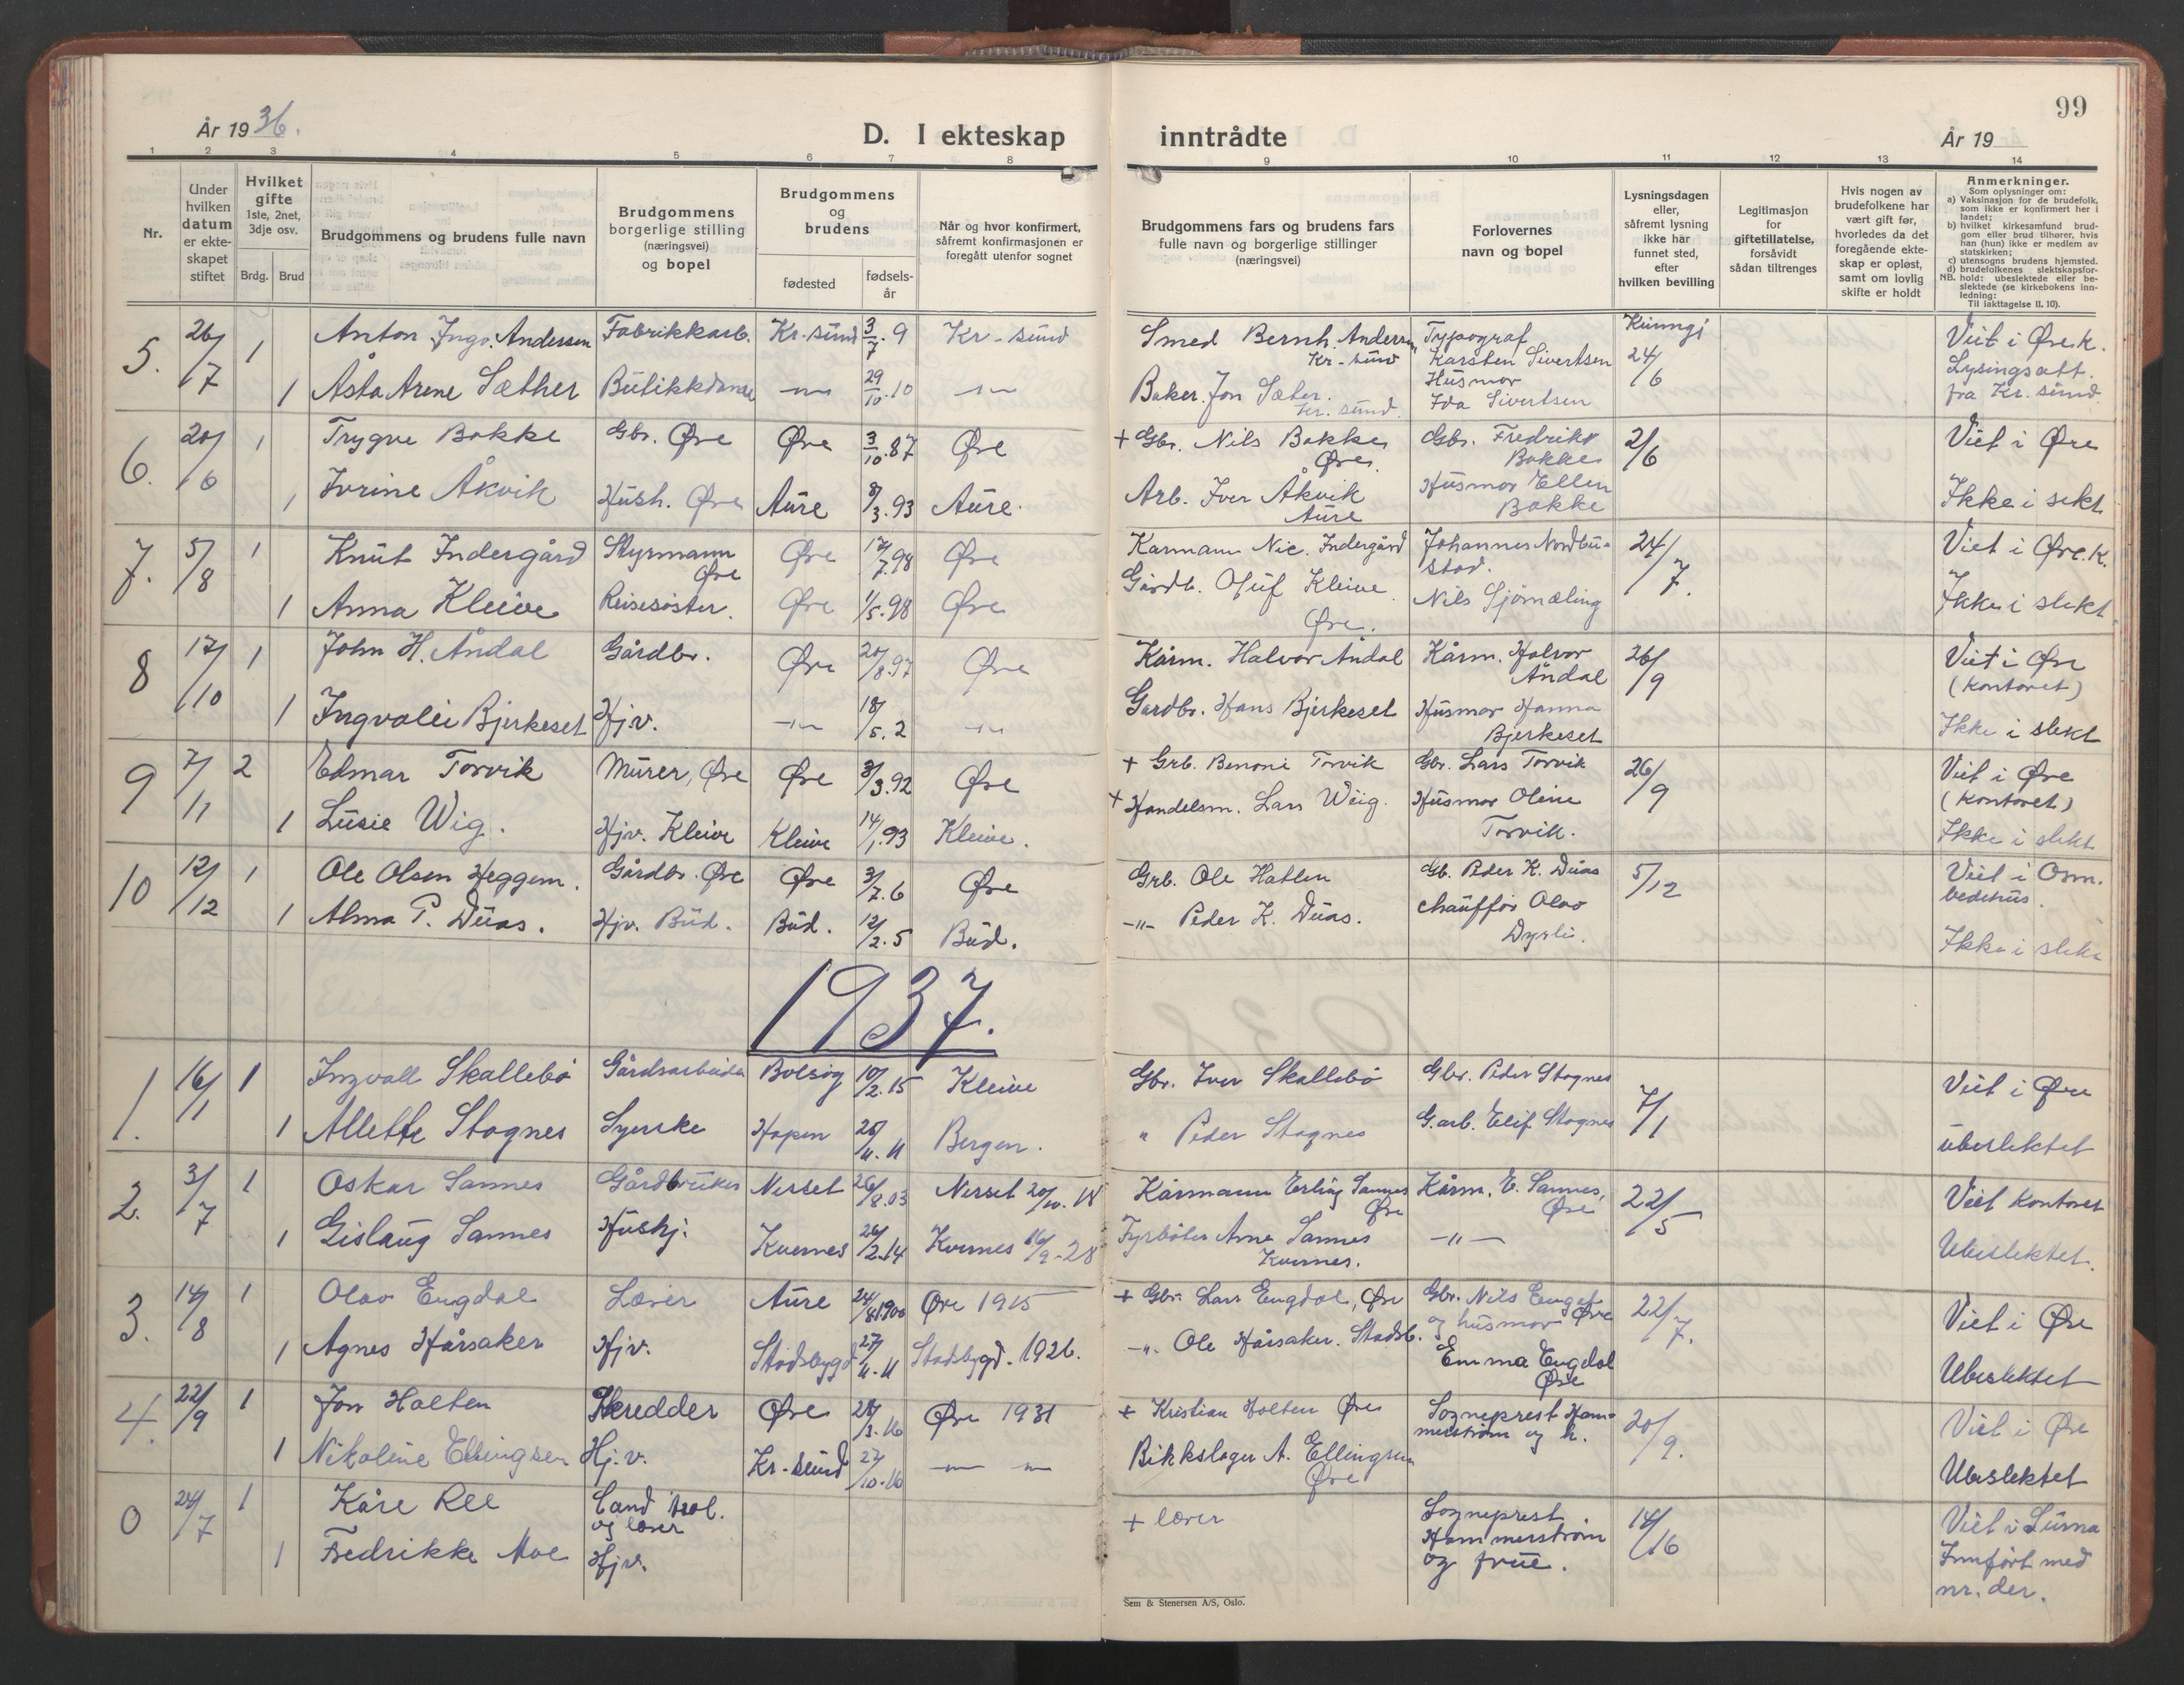 99
År 1936.
D. I ekteskap inntrådte
År 19
1 2 3 4 5 6 7 8 9 10 11 12 13 14
Nr.
Under hvilken datum er ekteskapet stiftet
Hvilket gifte 1ste, 2net, 3dje osv.
Brdg. Brud
Brudgommens og brudens fulle navn
Brudgommens borgerlige stilling (næringsvei) og bopel
Brudgommens og brudens
fødested
fødselsår
Når og hvor konfirmert, såfremt konfirmasjonen er foregått utenfor sognet
Brudgommens fars og brudens fars fulle navn og borgerlige stillinger (næringsvei)
Forlovernes navn og bopel
Lysningsdagen eller, såfremt lysning ikke har funnet sted, efter hvilken bevilling
Legitimasjon for giftetillatelse, forsåvidt sådan tiltrenges
Hvis nogen av brudefolkene har vært gift før, hvorledes da det foregående ekteskap er opløst, samt om lovlig skifte er holdt
Anmerkninger.
Som oplysninger om:
a) Vaksinasjon for de brudefolk, som ikke er konfirmert her i landet;
b) hvilket kirkesamfund brudgom eller brud tilhører, hvis han (hun) ikke er medlem av statskirken;
c) utensogns brudens hjemsted.
d) brudefolkenes slektskapsforhold: ubeslektede eller beslektede (se kirkebokens innledning:
NB.
Til iakttagelse II. 10).
5. 26/7 1 Anton Ingv. Andersen Fabrikkarb. Kr-sund 3/7.9 Kr-sund Smed Bernh. Andersen Kr-sund Typograf Karsten Sivertsen 24/6 Viet i Øre k.
1 Åsta Arene Sæther Butikkdame -"- 29/10.10 -"- Baker. Jon Sæter. Kr. sund. Husmor Ida Sivertsen Lysingsatt. fra Kr. sund
6. 20/6 1 Trygve Bakke Gbr. Øre Øre 3/10.87 Øre + Gbr. Nils Bakke Øre. Gbr. Fredrik Bakke 2/6 Viet i Øre
1 Ivrine Åkvik Hush. Øre Aure 8/3.93 Aure. Arb. Iver Åkvik Aure Husmor Ellen Bakke Ikke i slekt
7. 5/8 1 Knut Indergård Styrmann Øre Øre 12/7.98 Øre Karmann Nic. Indergård Johannes Nordbustad. 24/7. Viet i Øre. k.
1 Anna Kleive Reisesøster. Øre 1/5.98 Øre Gårdb. Oluf Kleive Øre. Nils Sjømæling Ikke i slekt
8 17/10 1 John H. Åndal Gårdbr. Øre 20/8.97 Øre Kårm. Halvor Åndal Kårm. Halvor Åndal 26/9 Viet i Øre (Kontoret)
1 Ingvalei Bjerkeset Hjv. -"- 18/5.2 -"- Gardbr. Hans Bjerkeset Husmor Hanna Bjerkeset Ikke i slekt
9 7/11 2 Edmar Torvik Murer, Øre Øre 8/3.92 Øre + Grb. Benoni Torvik Gbr. Lars Torvik 26/9 Viet i Øre (Kontoret)
1 Lusie Wig. Hjv. Kleive Kleive 14/1.93 Kleive. + Handelsm. Lars Wiig. Husmor Oline Torvik. Ikke i slekt
10 12/12 1 Ole Olsen Heggem. Gårdbr. Øre Øre 3/7.6 Øre Grb. Ole Hatlen Gb. Peder K. Duas 5/12 Viet i Osm. bedehus.
1 Alma P. Duas. Hjv. Bud. Bud. 12/2.5 Bud. -"- Peder K. Duas. chauffør Olav Dyrli. Ikke i slekt
1937.
1. 16/1 1 Ingvall Skallebø Gårdsarbeider Bolsøy 10/2.15 Kleive Gbr. Iver Skallebø Gbr. Peder Stognes 7/1 Viet i Øre
1 Allette Stognes Syerske Hopen 25/11.11 Bergen. " Peder Stognes G.arb. Elif Stognes ubeslektet
2. 3/7 1 Oskar Sannes Gårdbruker Nesset 26/8.03 Nesset 20/10.18 Kårmann Erling Sannes Øre Kårm. E. Sannes, Øre 22/5 Viet kontoret
1 Gislaug Sannes Hushj. Kvernes 26/2.14 Kvernes 16/9-28 Fyrbøter Arne Sannes Kvernes. -"- Ubeslektet.
3. 14/8 1 Olav Engdal Lærer Aure 24/8 1900 Øre 1915 + Gbr. Lars Engdal, Øre Gbr. Nils Engdal og husmor Øre 22/7. Viet i Øre
1 Agnes Hårsaker Hjv. Stadsbygd 27/11.11 Stadsbygd. 1926. -". Ole Hårsaker. Stadsb. Emma Engdal Øre Ubeslektet
4. 22/9 1 Jon Holten Skredder Øre 28/3.16 Øre 1931 + Kristian Holten Øre Sogneprest Hammerstrøm og h. 20/9. Viet i Øre
1 Nikoline Ellingsen Hj.v. Kr-sund 22/10.16 -"- -"- Blikkslager A. Ellingsen Øre Ubeslektet
0 24/7 1 Kåre Ree Cand. teol. og lærer + lærer Sogneprest Hammerstrøm og frue. 14/16 Viet i Surna
1 Fredrikke Moe Hjv. Innført med nr. der.
Sem & Stenersen A/S, Oslo.